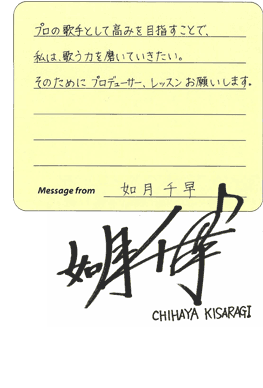 プロの歌手として高みを目指すことで、
私は、歌う力を磨いていきたい。
そのためにプロデューサー、レッスンお願いします。
Message from 如月千早
如月千早
CHIHAYA KISARAGI